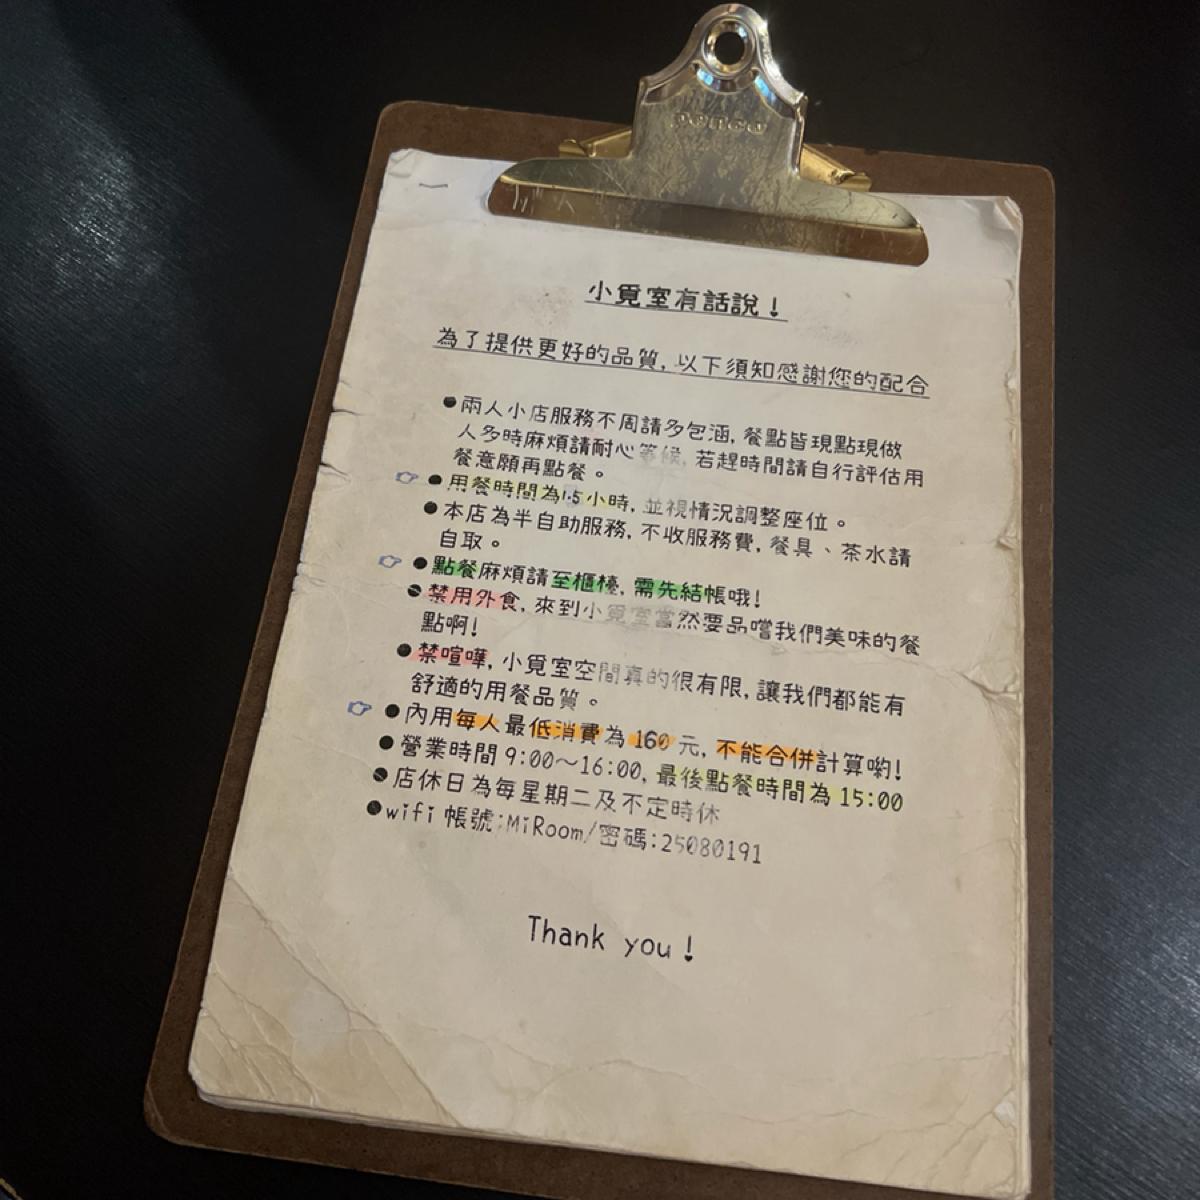 penco
小覓室有話說！
為了提供更好的品質, 以下須知感謝您的配合
●兩人小店服務不周請多包涵, 餐點皆現點現做
人多時麻煩請耐心等候, 若趕時間請自行評估用
餐意願再點餐。
●用餐時間為1.5小時, 並視情況調整座位。
●本店為半自助服務, 不收服務費, 餐具、茶水請
自取。
●點餐麻煩請至櫃檯, 需先結帳哦!
●禁用外食, 來到小覓室當然要品嚐我們美味的餐
點啊!
●禁喧嘩, 小覓室空間真的很有限, 讓我們都能有
舒適的用餐品質。
●內用每人最低消費為160元, 不能合併計算喲!
●營業時間9:00～16:00, 最後點餐時間為15:00
●店休日為每星期二及不定時休
●wifi 帳號:MiRoom/密碼:25080191
Thank you!